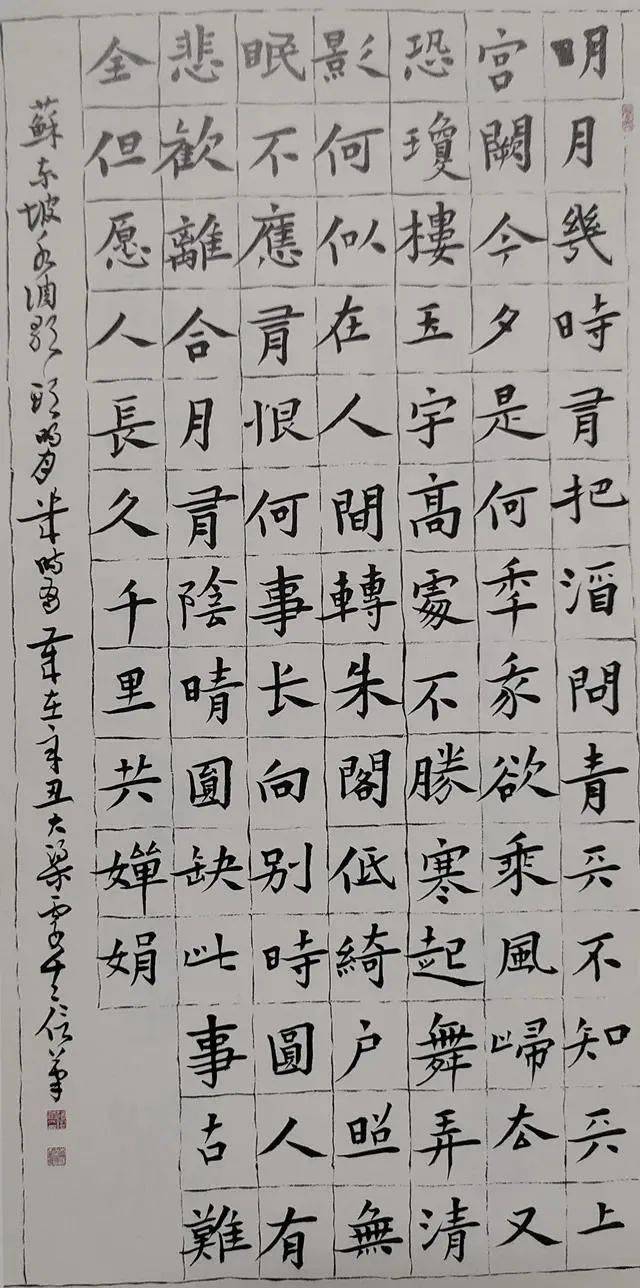 明月幾時有把酒問青天不知天上
宮闕今夕是何年我欲乘風歸去又
恐瓊樓玉宇高處不勝寒起舞弄清
影何似在人間轉朱閣低綺户照無
眠不應有恨何事长向别時圓人有
悲歡離合月有陰晴圓缺此事古難
全但愿人長久千里共嬋娟
蘇東坡水調歌頭明月幾時有歲在辛丑大梁